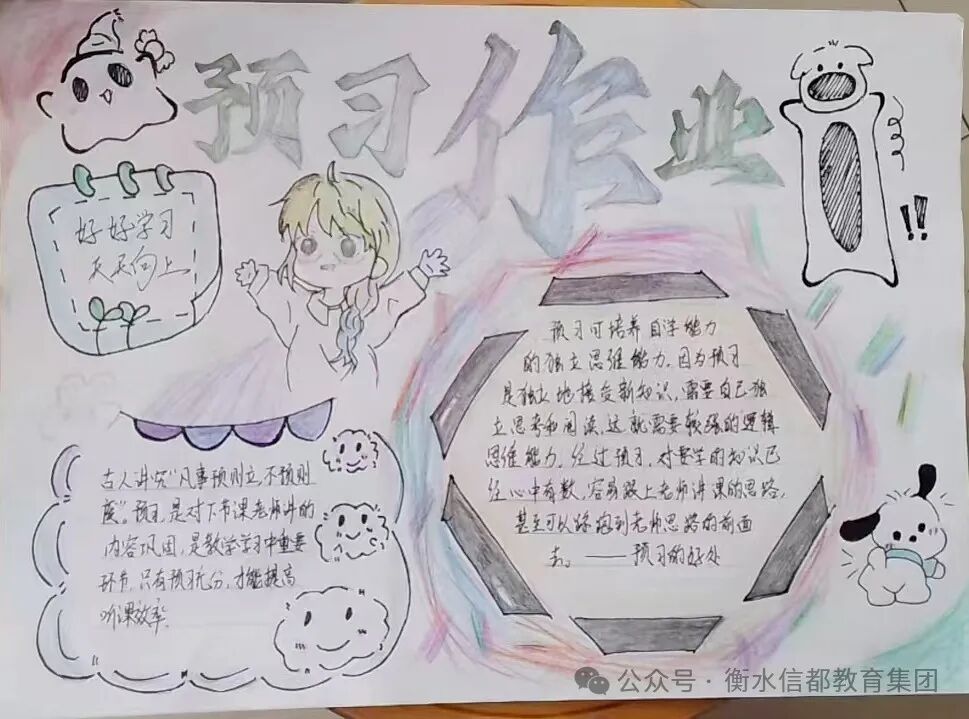 预习作业
好好学习
天天向上
预习可培养自学能力
的独立思维能力，因为预习
是独立地接受新知识，需要自己独
立思考和阅读，这就需要较强的逻辑
思维能力，经过预习，对要学的知识已
经心中有数，容易跟上老师讲课的思路，
甚至可以跑到老师思路的前面
去。——预习的好处
古人讲究“凡事预则立，不预则
废”。预习，是对下节课老师讲的
内容巩固，是教学学习中重要
环节，只有预习充份，才能提高
听课效率。
公众号·衡水信都教育集团